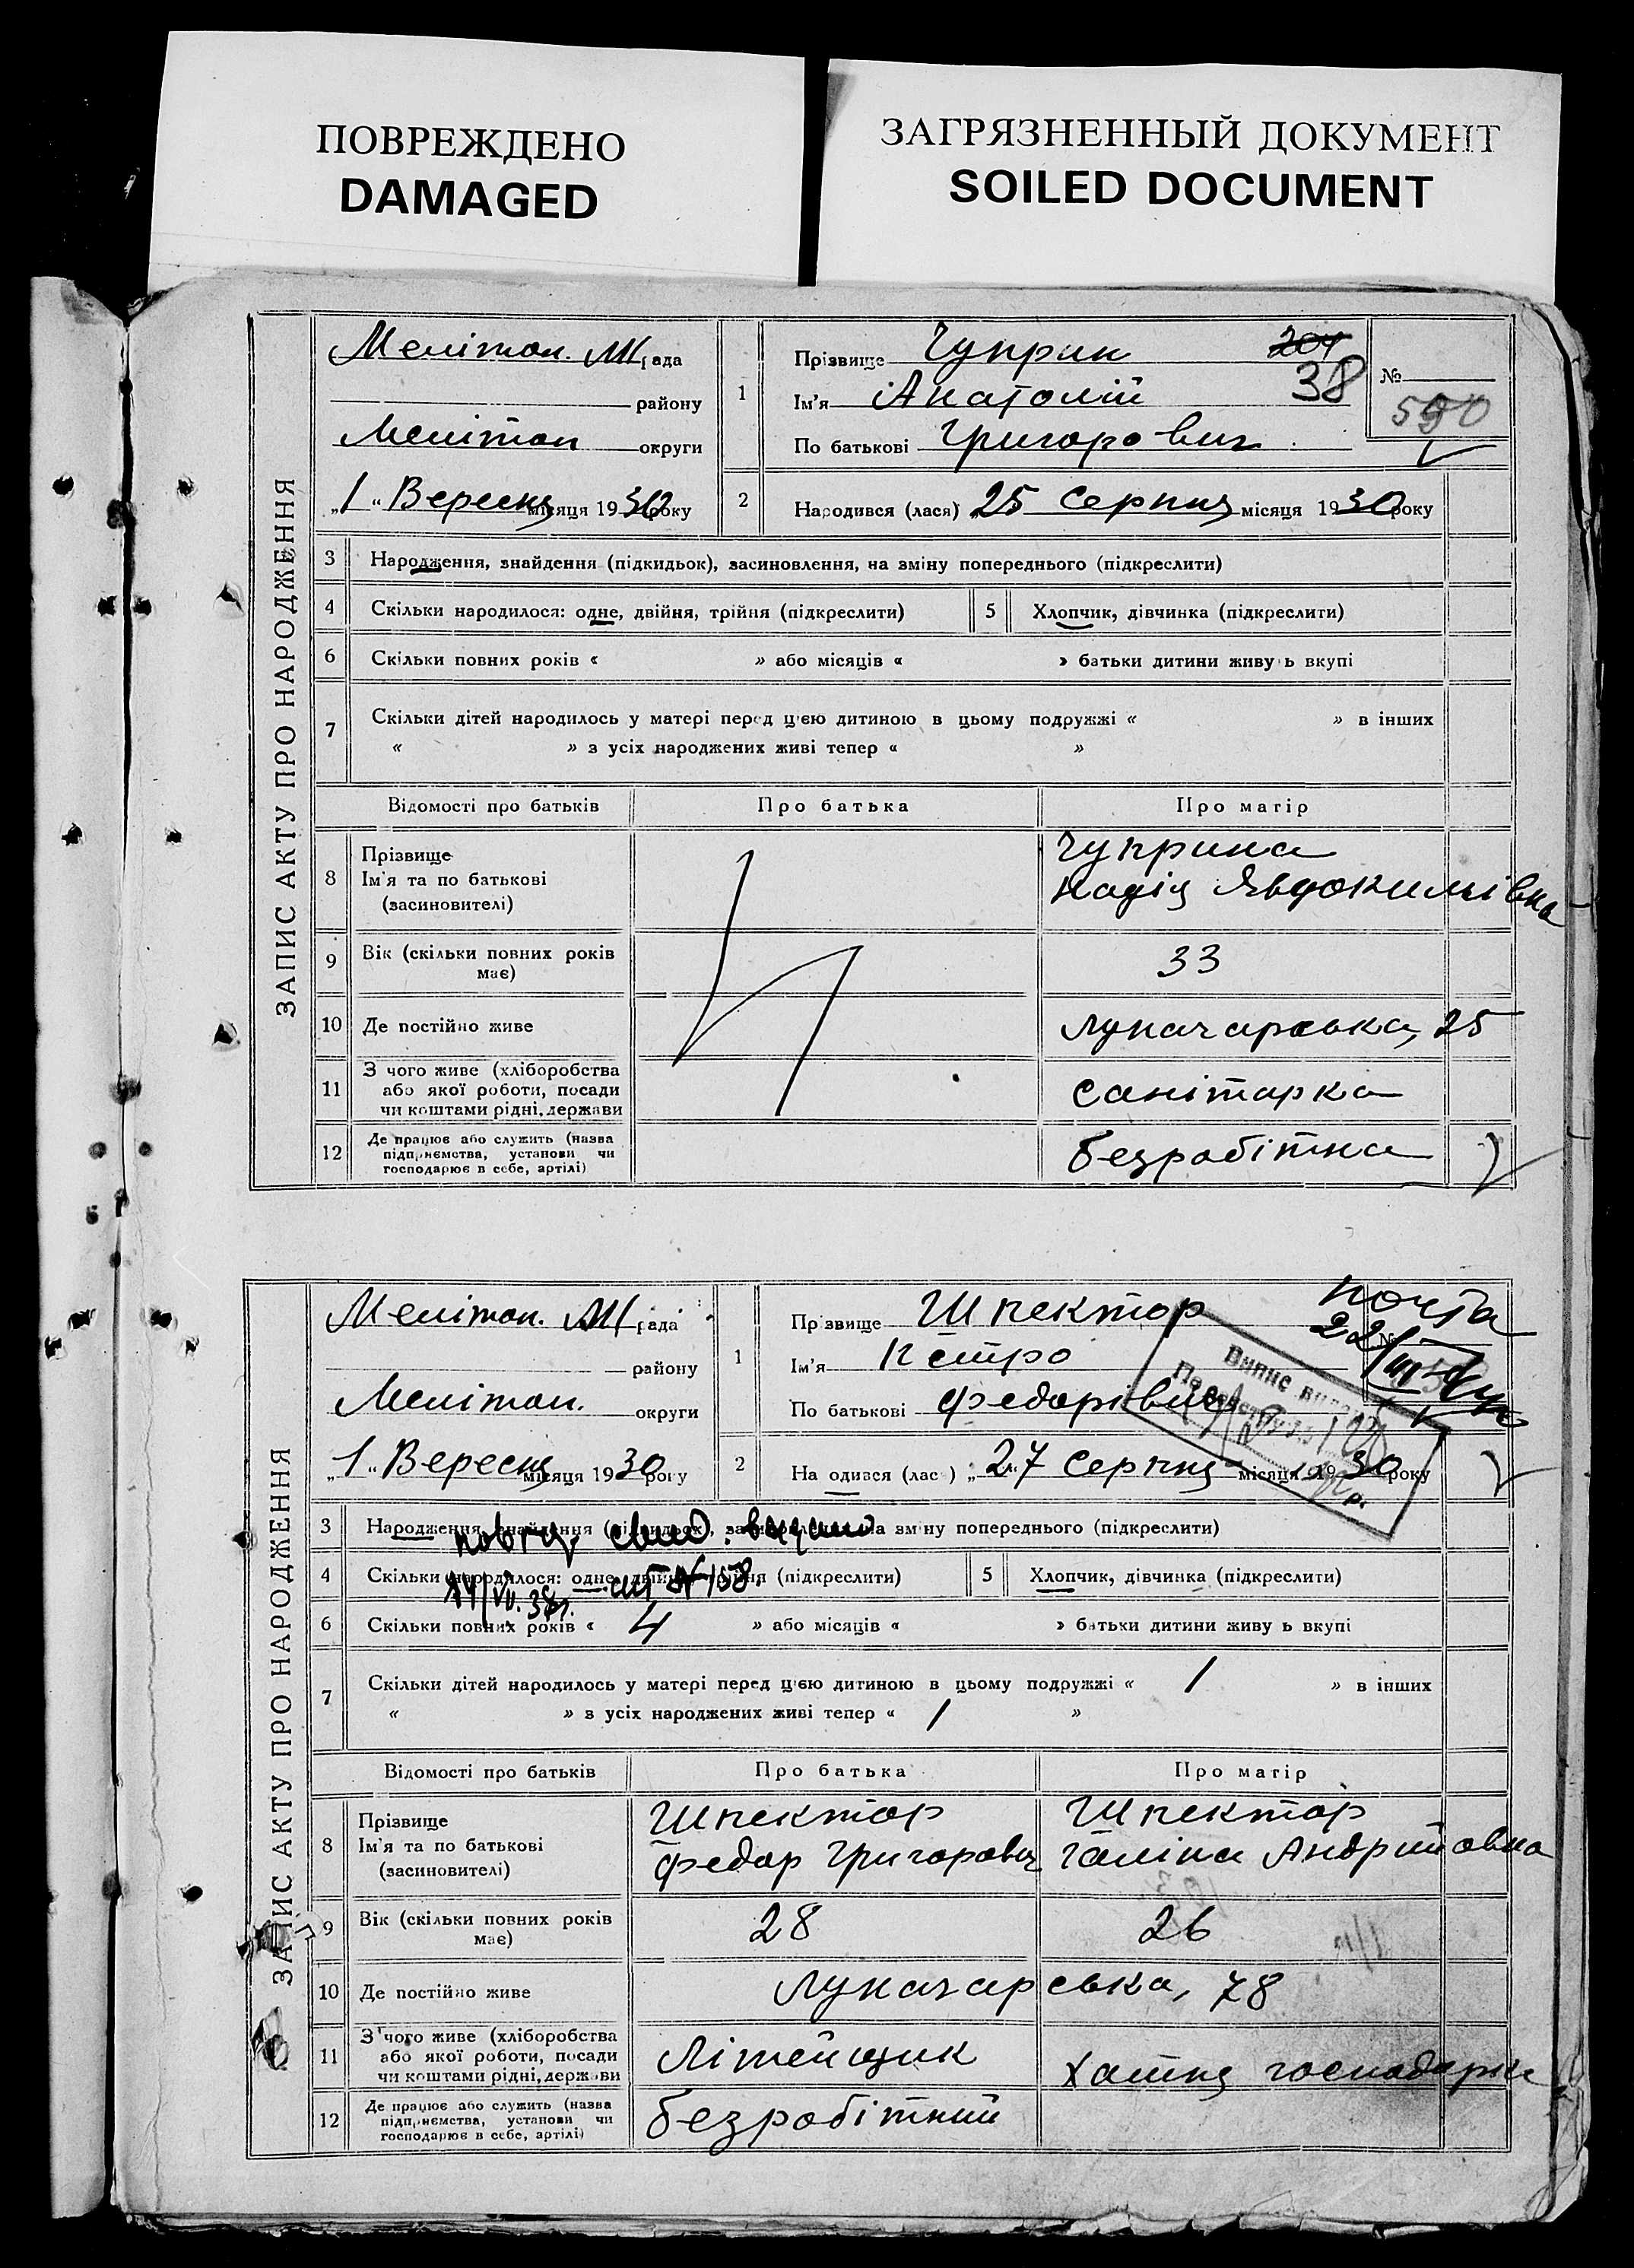 ПОВРЕЖДЕНО
DAMAGED
ЗАГРЯЗНЕННЫЙ ДОКУМЕНТ
SOILED DOCUMENT
ЗАПИС АКТУ ПРО НАРОДЖЕННЯ
Мелітоп. М/рада
району
Мелітоп округи
„1" Вересня місяця 1930 року
1 Прізвище Чуприн 204
Ім'я Анатолій 38
По батькові Григорович
№
590
2 Народився (лася) „25 Серпня місяця 1930 року
3 Народження, знайдення (підкидьок), засиновлення, на зміну попереднього (підкреслити)
4 Скільки народилося: одне, двійня, трійня (підкреслити) 5 Хлопчик, дівчинка (підкреслити)
6 Скільки повних років « » або місяців « » батьки дитини живуь вкупі
7 Скільки дітей народилось у матері перед цією дитиною в цьому подружжі « » в інших
« » з усіх народжених живі тепер « »
Відомості про батьків Про батька Про матір
8 Прізвище Чуприна
Ім'я та по батькові Надія Явдокимівна
(засиновителі)
9 Вік (скільки повних років має) 33
10 Де постійно живе Луначарська, 25
11 З чого живе (хліборобства
або якої роботи, посади Санітарка
чи коштами рідні, держави
12 Де працює або служить (назва
підприємства, установи чи безробітна
господарює в себе, артілі)
ЗАПИС АКТУ ПРО НАРОДЖЕННЯ
Мелітоп. М/рада
району
Мелітоп. округи
„1" Вересня місяця 1930 року
1 Прізвище Шпектор почта
Ім'я Петро 22/III
По батькові Федорівич
Випис
р.
2 Народився (лася) „27 Серпня місяця 1930 року
3 Народження, знайдення (підкидьок), засиновлення, на зміну попереднього (підкреслити)
повтор. свид. выдано
4 Скільки народилося: одне, двійня, трійня (підкреслити) 5 Хлопчик, дівчинка (підкреслити)
14/VII.38г. № 158.
6 Скільки повних років « 4 » або місяців « » батьки дитини живуь вкупі
7 Скільки дітей народилось у матері перед цією дитиною в цьому подружжі « 1 » в інших
« » з усіх народжених живі тепер « 1 »
Відомості про батьків Про батька Про матір
8 Прізвище Шпектор Шпектор
Ім'я та по батькові Федор Григорович Галіна Андрийовна
(засиновителі)
9 Вік (скільки повних років має) 28 26
10 Де постійно живе Луначарська, 78
11 З чого живе (хліборобства
або якої роботи, посади Літейщик Хатня господарка
чи коштами рідні, держави
12 Де працює або служить (назва
підприємства, установи чи безробітний
господарює в себе, артілі)